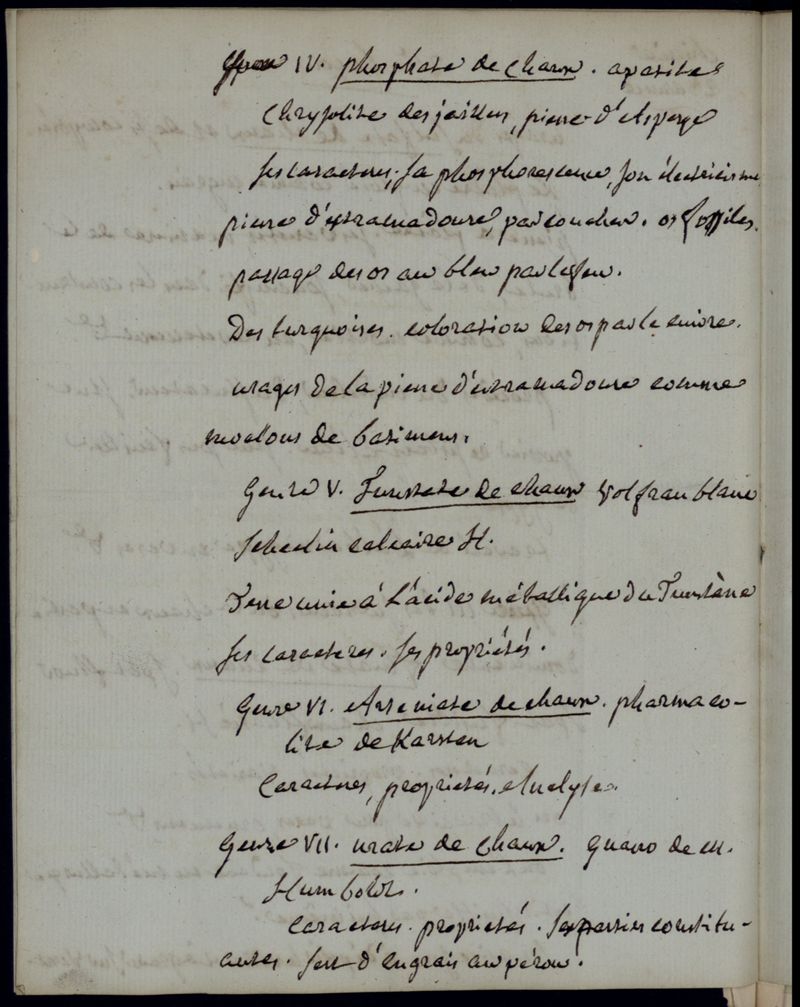 Genre IV. phosphate de chaux. apatite
Chrysolite des joailliers, pierre d'Asperge
Ses caracteres, sa phosphorescence, son électricisme
pierre d'estramadoure, par couches. os fossiles.
passage des os au bleu par le feu.
Des turquoises. coloration des os par le cuivre.
usages de la pierre d'estramadoure comme
moëllons de batimens.
Genre V. Tunstate de chaux Wolfran blanc
Scheelin calcaire H.
Terre unie à L'acide métallique du Tunstène
Ses caracteres. Ses propriétés.
Genre VI. Arseniate de chaux. pharmaco-
lite de Karsten
Caracteres, propriétés. Analyse.
Genre VII. urate de chaux. Guano de M.
Humboldt.
Caracteres. propriétés. Ses parties constitu-
antes. sert d'engrais au pérou.